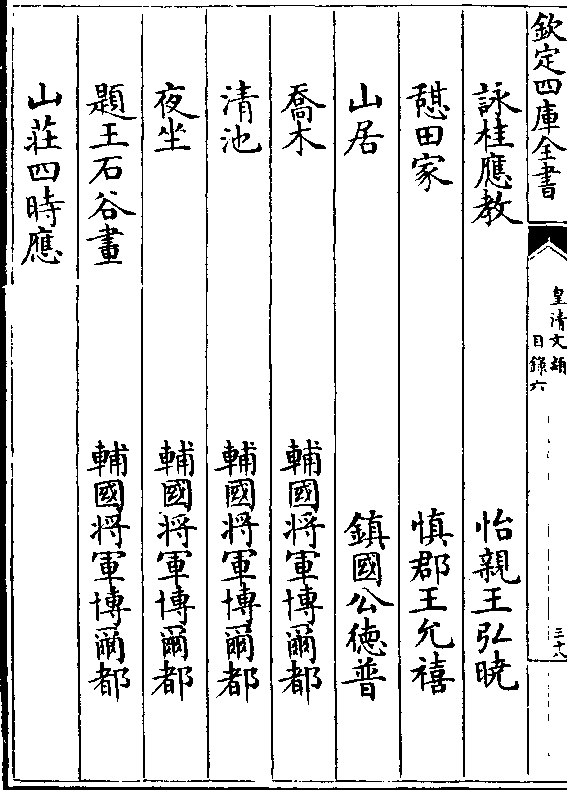 欽定四庫全書
皇清文穎
目錄六
三十八
詠桂應教 怡親王弘曉
憇田家 慎郡王允禧
山居 鎮國公德普
喬木 輔國將軍博爾都
清池 輔國將軍博爾都
夜坐 輔國將軍博爾都
題王石谷畫 輔國將軍博爾都
山莊四時應